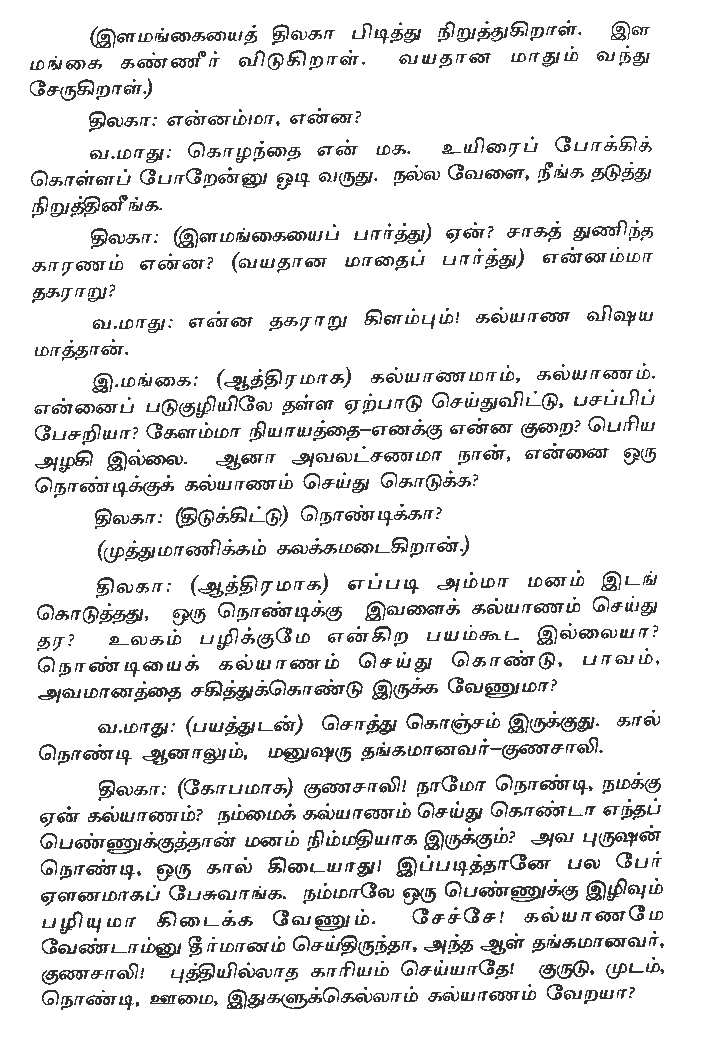 (இளமங்கையைத் திலகா பிடித்து நிறுத்துகிறாள். இள
மங்கை கண்ணீர் விடுகிறாள். வயதான மாதும் வந்து
சேருகிறாள்.)
திலகா: என்னம்மா, என்ன?
வ.மாது: கொழந்தை என் மக. உயிரைப் போக்கிக்
கொள்ளப் போறேன்னு ஓடி வருது. நல்ல வேளை, நீங்க தடுத்து
நிறுத்தினீங்க.
திலகா: (இளமங்கையைப் பார்த்து) ஏன்? சாகத் துணிந்த
காரணம் என்ன? (வயதான மாதைப் பார்த்து) என்னம்மா
தகராறு?
வ.மாது: என்ன தகராறு கிளம்பும்! கல்யாண விஷய
மாத்தான்.
இ.மங்கை: (ஆத்திரமாக) கல்யாணமாம், கல்யாணம்.
என்னைப் படுகுழியிலே தள்ள ஏற்பாடு செய்துவிட்டு, பசப்பிப்
பேசறியா? கேளம்மா நியாயத்தை–எனக்கு என்ன குறை? பெரிய
அழகி இல்லை. ஆனா அவலட்சணமா நான், என்னை ஒரு
நொண்டிக்குக் கல்யாணம் செய்து கொடுக்க?
திலகா: (திடுக்கிட்டு) நொண்டிக்கா?
(முத்துமாணிக்கம் கலக்கமடைகிறான்.)
திலகா: (ஆத்திரமாக) எப்படி அம்மா மனம் இடங்
கொடுத்தது, ஒரு நொண்டிக்கு இவளைக் கல்யாணம் செய்து
தர? உலகம் பழிக்குமே என்கிற பயம்கூட இல்லையா?
நொண்டியைக் கல்யாணம் செய்து கொண்டு, பாவம்,
அவமானத்தை சகித்துக்கொண்டு இருக்க வேணுமா?
வ.மாது: (பயத்துடன்) சொத்து கொஞ்சம் இருக்குது. கால்
நொண்டி ஆனாலும், மனுஷரு தங்கமானவர்–குணசாலி.
திலகா: (கோபமாக) குணசாலி! நாமோ நொண்டி, நமக்கு
ஏன் கல்யாணம்? நம்மைக் கல்யாணம் செய்து கொண்டா எந்தப்
பெண்ணுக்குத்தான் மனம் நிம்மதியாக இருக்கும்? அவ புருஷன்
நொண்டி, ஒரு கால் கிடையாது! இப்படித்தானே பல பேர்
ஏளனமாகப் பேசுவாங்க. நம்மாலே ஒரு பெண்ணுக்கு இழிவும்
பழியுமா கிடைக்க வேணும். சேச்சே! கல்யாணமே
வேண்டாம்னு தீர்மானம் செய்திருந்தா, அந்த ஆள் தங்கமானவர்,
குணசாலி! புத்தியில்லாத காரியம் செய்யாதே! குருடு, முடம்,
நொண்டி, ஊமை, இதுகளுக்கெல்லாம் கல்யாணம் வேறயா?